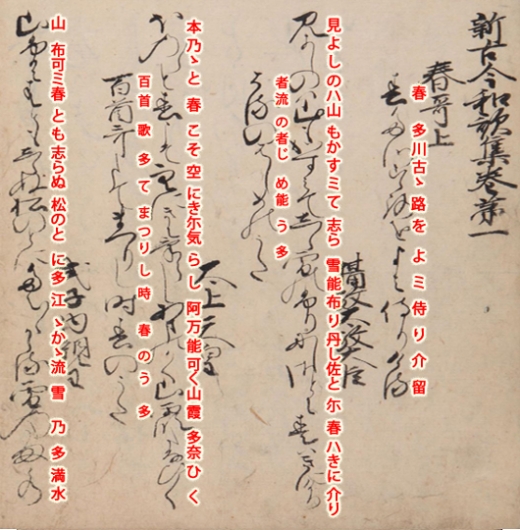 新古今和歌集巻第一
春哥上
春 多川古ゝ路 を よ ミ 侍 り 介 留
摂政太政大臣
見よしのハ山 もかすミて 志ら 雪能布り丹し佐と 尓 春ハきに介り
者流 の者じ め能 う 多
太上天皇
本乃ゝと 春 こそ空 にき尓気 らし 阿万能可く山霞 多奈ひ く
百首 歌 多 て まつりし時 春 の う 多
式子内親王
山 布可ミ春 とも志らぬ 松のと に多 江ゝかゝ流 雪 乃 多満水